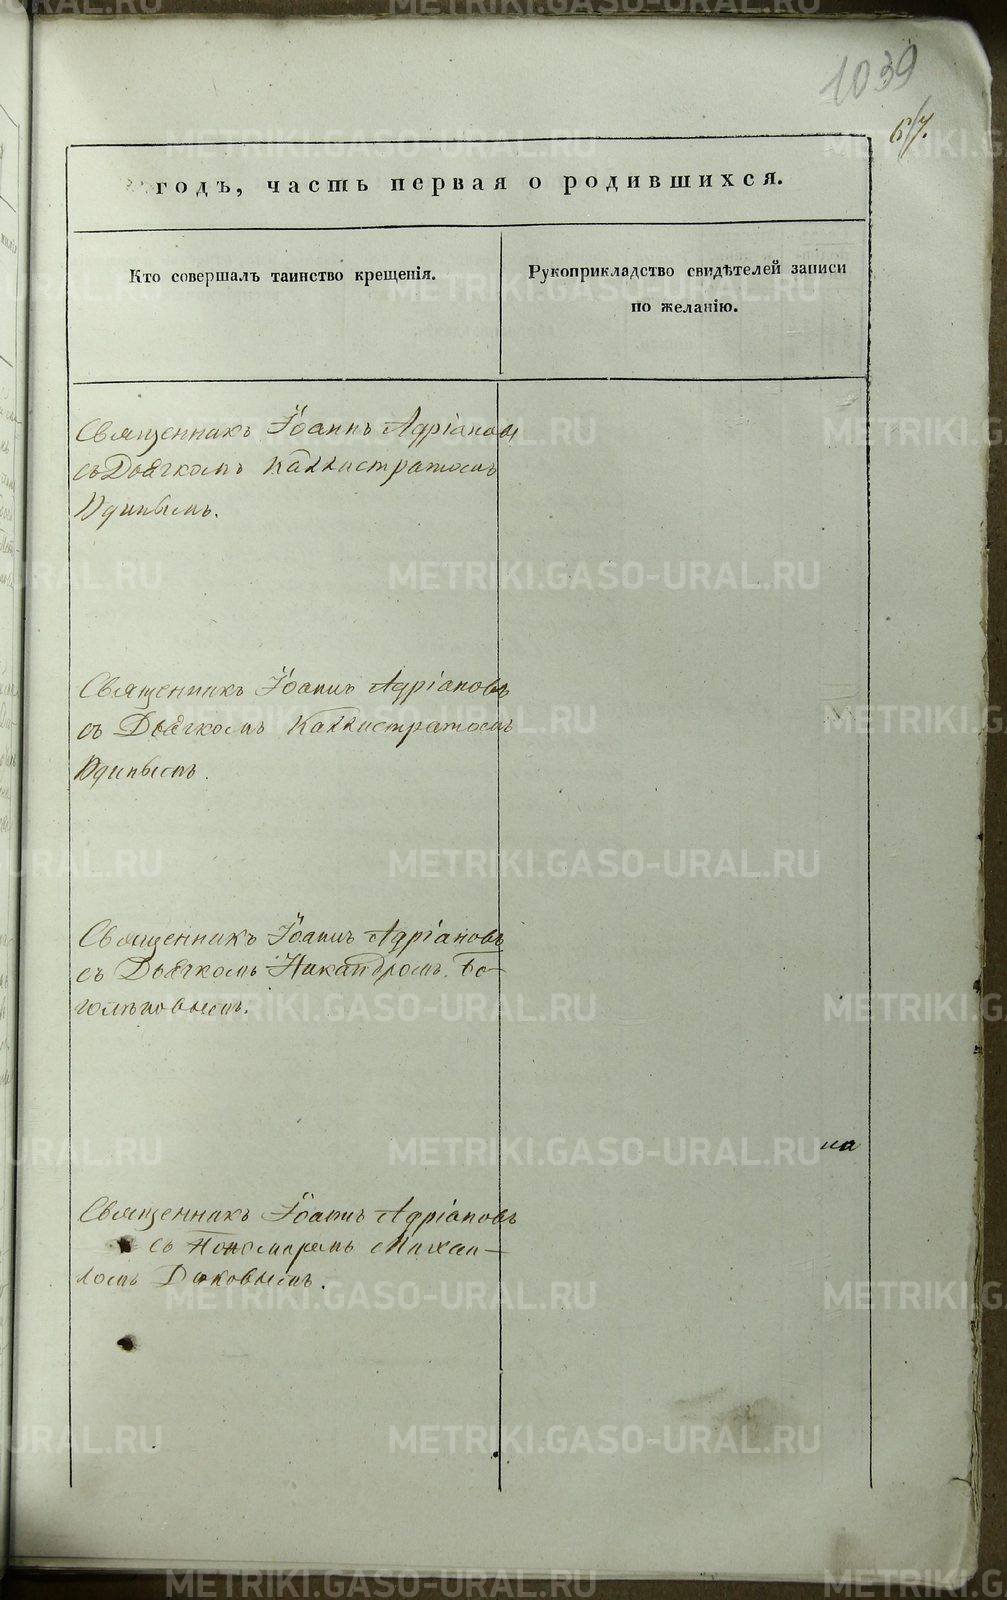 1039
67.
годъ, часть первая о родившихся.
Кто совершалъ таинство крещенія.
Рукоприкладство свидѣтелей записи
по желанію.
Священникъ Іоаннъ Адріановъ
съ Дьячкомъ Каллистратомъ
Удинымъ.
Священникъ Іоаннъ Адріановъ
съ Дьячкомъ Каллистратомъ
Удинымъ.
Священникъ Іоаннъ Адріановъ
съ Дьячкомъ Никандромъ Бо-
голѣповымъ.
на
Священникъ Іоаннъ Адріановъ
съ Пономаремъ Михаи-
ломъ
METRIKI.GASO-URAL.RU